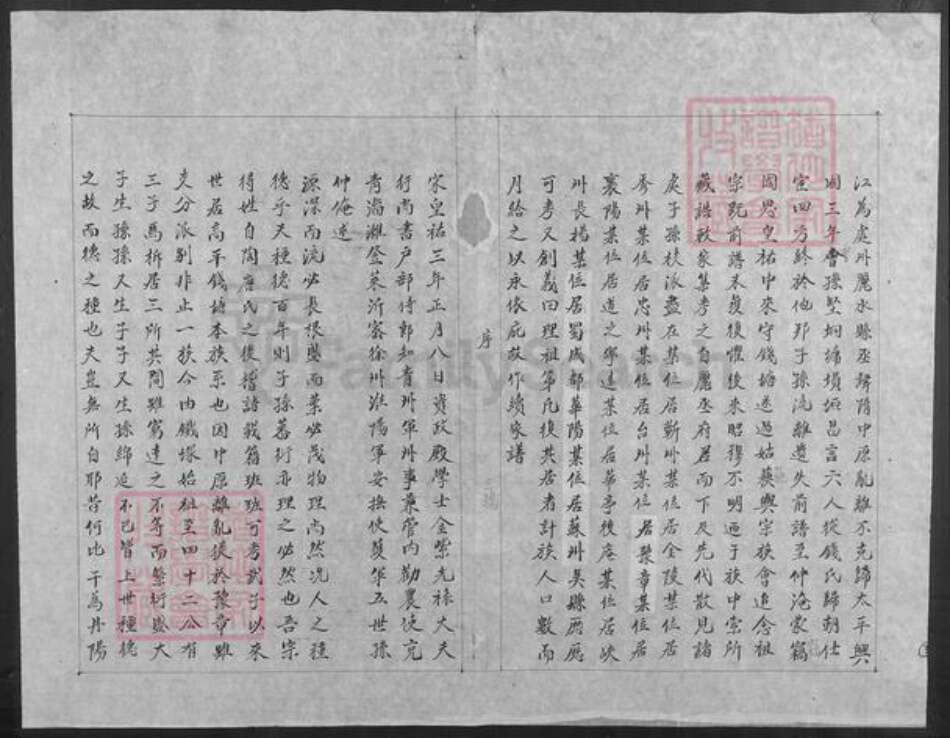 江為處州麗水縣丞時隋中原亂離不克歸太平興
國三年會孫堅坰墉塤垣昌言六人從錢氏歸朝仕
宦四方終於他邦子孫流離遺失前譜至仲淹蒙竊
國恩皇祐中來守錢塘遂過姑蘇與宗族會追念祖
宗既前譜未獲復懼後來昭穆不明迺于族中索所
藏誥敕家集考之自麗丞府居而下及先代散見諸
處子孫枝派盡在某位居蘄州某位居金陵某位居
秀州某位居忠州某位居台州某位居豫章某位居
襄陽某位居道之寧遠某位居華亭後庵某位居陝
州長楊某位居蜀成都華陽某位居蘇州吳縣廊應
可考又創義田理祖第凡復其居者計族人口數而
月給之以永依庇故作續家譜
序
宋皇祐三年正月八日資政殿學士金紫光祿大夫
行尚書戶部侍郎知青州軍州事兼管內勸農使充
青淄濰登萊沂密徐州淮陽軍安撫使護軍五世孫
仲淹述
源深而流必長根盛而葉必茂物理尚然況人之種
德乎夫種德百年則子孫蕃衍亦理之必然也吾宗
得姓自陶唐氏之後稽諸載籍班班可考武子以來
世居高平錢塘本族系也因中原離亂徙於豫章雖
支分派別非止一族今由鐵塚始祖至四十二公有
三子焉析居三所其間雖窮達之不等而繁衍盛大
子生孫孫又生子子又生孫綿延不已皆上世種德
之故而德之種也夫豈無所自耶昔何比干為丹陽